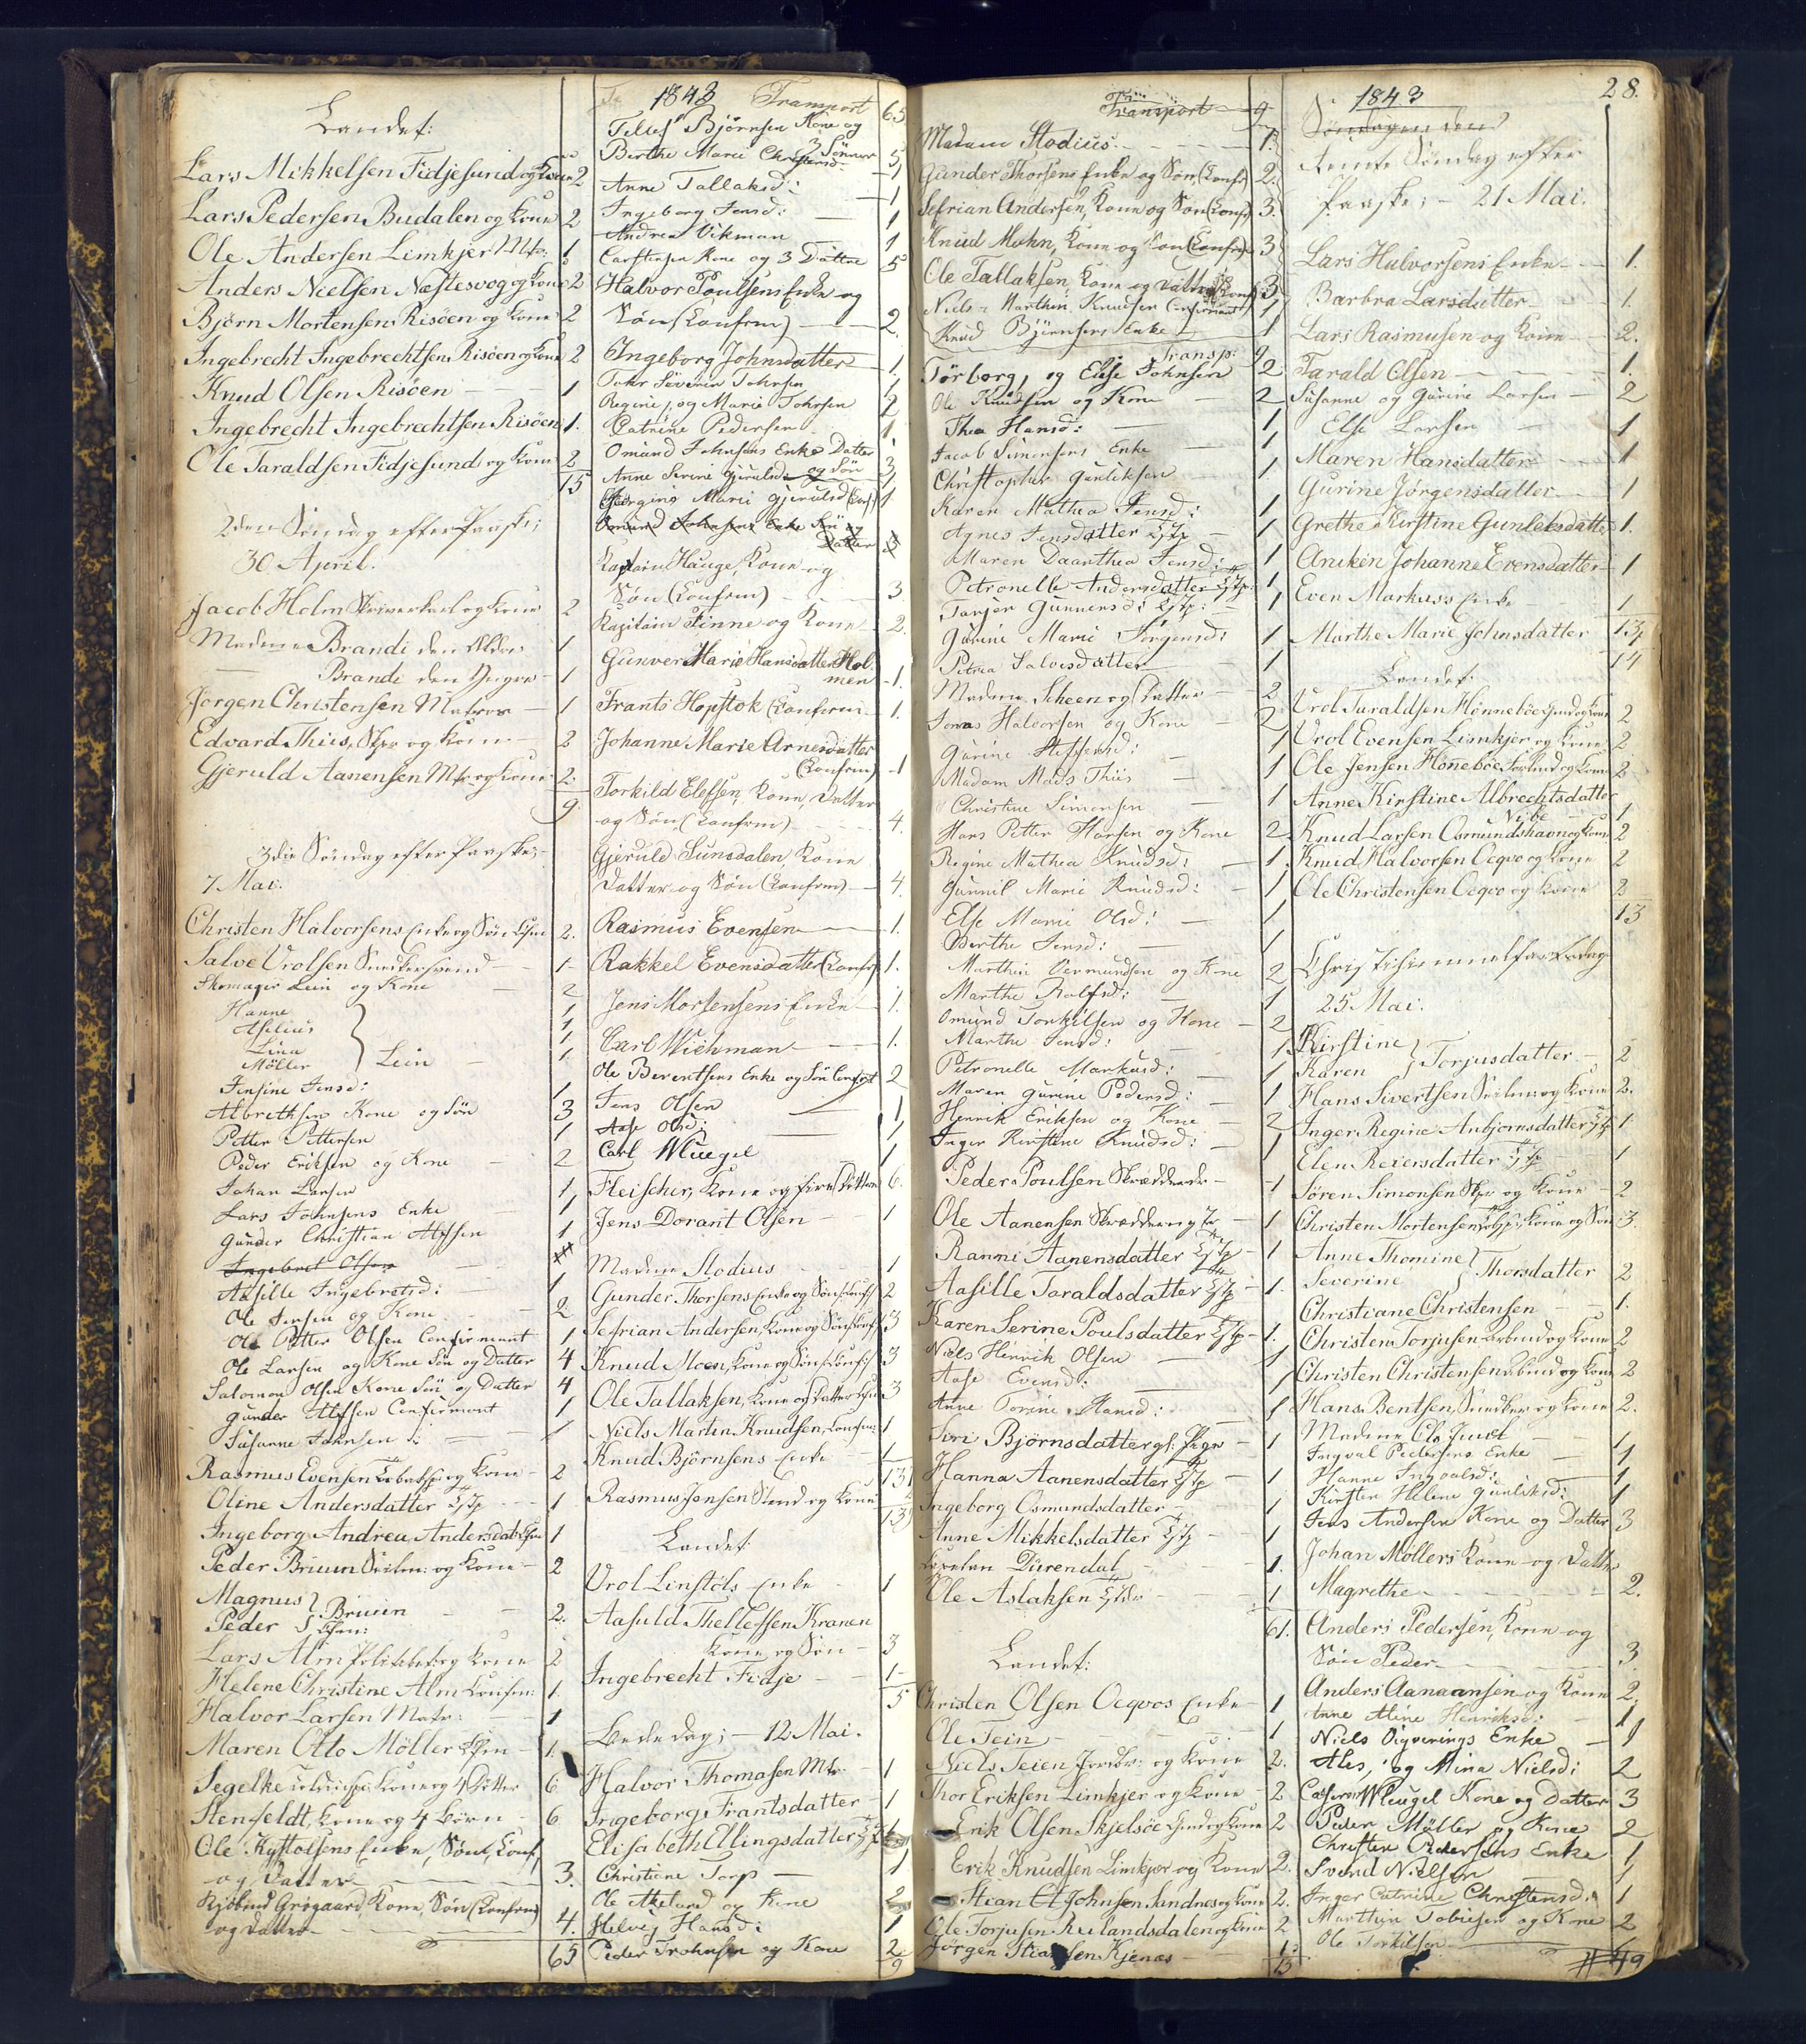 Landet:
Lars Mikkelsen Fidjesund og Kone 2
Lars Pedersen Budalen og Kone 2
Ole Andersen Limkjer Mtr: 1
Anders Nielsen Næstesvog og Kone 2
Björn Mortensens Risöen og Kone 2
Ingebrecht Ingebrechtsens Risöen og Kone 2
Knud Olsen Risöen 1
Ingebrecht Ingebrechtsen Risöen 1.
Ole Taraldsen Fidjesund og Kone 2
15
2den Søndag efter Paaske;
30 April.
Jacob Holm og Kone 2
Madame Brandi den Ældre 1
Brandi den Yngre 1
Jörgen Christensen Matros 1
Edvard Thiis, Skpr og Kone 2
Gjeruld Aanensen Mtr og Kone 2.
9
3die Søndag efter Paaske;
7 Mai.
Christen Halvorsens Enke og Sön 2.
Salve Vrolsen Snedkersvend 1
Skomager Lein og Kone 2
Hanne 1
Aselius 1
Lina 1
Möller } Lein 1
Jensine Jensd: 1
Albrethsens Kone og Sön 3
Petter Pettersen 1
Peder Eriksen og Kone 2
Johan Larsen 1
Lars Johnsens Enke 1
Gunder Christian Alfsen 1
Ingebret Olsen
Aasille Ingebretsd: 1
Ole Jensen og Kone 2
Ole Petter Olsen Confirmant 1
Ole Larsen og Kone Sön og Datter 4
Salomon Olsen Kone Sön og Datter 4
Gunder Alfsen Confirmant 1
Susanne Johnsen 1
Rasmus Evensen og Kone 2
Oline Andersdatter 1
Ingeborg Andrea Andersdat 1
Peder Bruun og Kone 2
Magnus
Peder } Bruun 2.
Lars Alm og Kone 2
Helene Christine Alm 1.
Halvor Larsen Matr: 1
Maren Otto Möller 1.
Segelke Kone og 4 Dötter 6
Stenfeldt, Kone og 4 Börn 6
Ole Kystolsens Enke, Sön, Conf,
og Datter 3.
Kjöbmd Grögaard, Kone, Sön (Confirm)
og Datter 4.
65
1843 Transport 65
Tellef Björnsen Kone og
3 Sönner 5
Berthe Marie Christensd 1
Anne Tallaksd: 1
Ingeborg Jensd: 1
Andrea Vikman 1
Carstensen Kone og 3 Döttre 5
Halvor Poulsens Enke og
Sön (Confirm) 2.
Ingeborg Johnsdatter 1
Tohr Severin Tohrsen 1
Regine, og Marie Tohrsen 2
Catrine Pedersen 1.
Omund Johnsens Enke Datter
og Sön 3
Anne Serine Gjeruldsd 1
Georgine Marie Gjeruldsd 1
Omund Johnsens Enke Sön og
Datter 3
Kaptain Hauge, Kone og
Sön (Confirm) 3
Kapitain Finne og Kone 2.
Gunver Marie Hansdatter Hol-
men 1.
Frants Hopstok (Confirm 1.
Johanne Marie Arnesdatter
(Confirm) 1
Torkild Elefsen, Kone, Datter
og Sön (Confirm) 4.
Gjeruld Sunddalen Kone
Datter og Sön (Confirm) 4.
Rasmus Evensen 1.
Rakkel Evensdatter (Confr) 1.
Jens Mortensens Enke 1.
Carl Wichman 1.
Ole Berentsens Enke og Sön 2
Jens Olsen 1
Aase Olsd: 1
Carl Wleugel 1
Fleischer, Kone og fire Döttre 6.
Jens Dorant Olsen 1
Madame Stodius 1
Gunder Thorsens Enke og Sön 2
Sefrian Andersen, Kone og Sön 3
Knud Moen, Kone og Sön 3
Ole Tallaksen, Kone og Datter 3
Niels Martin Knudsen, Confirm: 1
Knud Björnsens Enke 1
131
Rasmus Jensen Slend og Kone
Landet:
Vrol Linstöls Enke 1
Aasuld Thellefsen Kranen
Kone og Sön 3
Ingebrecht Fidje 1
5
Bededag; 12 Mai.
Halvor Thomasen Mtr. 1
Ingeborg Frantsdatter 1
Elisabeth Ellingsdatter
Christine Torp 1
Ole Akeland og Kone 2
Helvej Hansd: 1
Peder Trohnsen og Kone 2
9
Transport 9
Madam Stodius 1
Gunder Thorsens Enke og Sön, (Confr) 2.
Sefrian Andersen, Kone og Sön (Confr) 3.
Knud Mohn, Kone og Sön (Confr) 3
Ole Tallaksen, Kone og Datter (Confr) 3
Niels Marthin Knudsen Confirmant 1
Knud Björnsens Enke 1
Transp: 9
Törborg, og Elise Johnsen 2
Ole Knudsen og Kone 2
Thea Hansd: 1
Jacob Simonsens Enke 1
Christopher Gunliksen 1
Karen Mathea Jensd: 1
Agnes Jensdatter 1
Maren Daarthea Jensd: 1
Petronelle Andersdatter 1
Tarjer Gunnersd: 1
Gurine Marie Jörgensd: 1
Petrea Salvesdatter 1
Madame Scheen og Datter 2
Jonas Halvorsen og Kone 2
Gurine Steffensd: 1
Madam Mads Thiis 1
Christine Simonsen 1
Hans Petter Hansen og Kone 2
Regine Mathea Knudsd: 1
Gunnil Marie Knudsd: 1
Else Marie Olsd: 1
Berthe Jensd: 1
Marthin Vermundsen og Kone 2
Marthe Rolfsd: 1
Omund Torkilsen og Kone 2
Marthe Jensd: 1
Petronelle Markusd: 1
Maren Gurine Pedersd: 1
Henrik Eriksen og Kone 2
Inger Kirstine Knudsd: 1
Peder Poulsen Skrædder 1
Ole Aanensen Skrædder 1
Ranni Aanensdatter 1
Aasille Taraldsdatter 1.
Karen Serine Poulsdatter 1.
Niels Hinrik Olsen 1
Aase Evensd: 1
Anne Torine Hansd: 1
Siri Björnsdatter gl: Pige 1
Hanna Aanensdatter 1
Ingeborg Osmundsdatter 1
Anne Mikkelsdatter 1
Dürendal 1.
Ole Aslaksen 1
61.
Landet:
Christen Olsen Ocqvos Enke 1
Ole Tein 1
Niels Teien og Kone 2.
Thor Eriksen Limkjer og Kone 2
Erik Olsen Skjelsöe og Kone 2
Erik Knudsen Limkjær og Kone 2.
Stian Johnsen Sandnes og Kone 2.
Ole Torjusen Rulandsdalen og Kone 2
Jörgen Stiansen Kjenas 1.
15
28.
1843
Søndagen den
Femte Søndag efter
Paaske; 21 Mai.
Lars Halvorsens Enke 1.
Barbra Larsdatter 1.
Lars Rasmusen og Kone 2.
Tarald Olsen 1.
Susanne og Gurine Larsen 2
Else Larsen 1
Maren Hansdatter 1
Gurine Jörgensdatter 1
Grethe Kirstine Gunleksdatter 1.
Aniken Johanne Evensdatter 1
Even Markuss Enke 1
Marthe Marie Johnsdatter 13
14
Landet:
Vrol Taraldsen Hönneböe og Kone 2
Vrol Evensen Limkjer og Kone 2
Ole Jensen Höneböe og Kone 2
Anne Kirstine Albrechtsdatter
Vibe 1
Knud Larsen Osmundshavn og Kone 2
Knud Halvorsen Ocqvo og Kone 2
Ole Christensen Ocqvo og Kone 2
13
Christi Himmelfartsdag
25 Mai:
Kirstine
Karen } Torjusdatter 2
Hans Sivertsen og Kone 2.
Inger Regine Anbjörnsdatter 1
Elen Reiersdatter 1
Sören Simonsen Skpr og Kone 2
Christen Mortensen, Kone og Sön 3.
Anne Thomine
Severine } Thorsdatter 2
Christiane Christensen 1.
Christen Torjusen Arbmd og Kone 2
Christen Christensen Arbmd og Kone 2
Hans Bentsen, Snedker og Kone 2.
Madame Juul 1
Ingval Pedersens Enke 1
Hanne Ingvalsd: 1
Kirsten Helene Gunliksd: 1
Jens Andersen Kone og Datter 3
Johan Möllers Kone og Datter
Magrethe 2.
Anders Pedersen, Kone og
Sön Peder 3
Anders Aanaansen og Kone 2
Anne Aline Henriksd: 1
Niels Vigverings Enke 1
Ales, og Mina Nielsd: 2
Casper Wleugel Kone og Datter 3
Peder Möller og Kone 2
Christen Pedersens Enke 1
Svend Nielsen 1
Inger Catrine Christensd: 1
Marthin Tobiesen og Kone 2
Ole Torkilsen 1
49